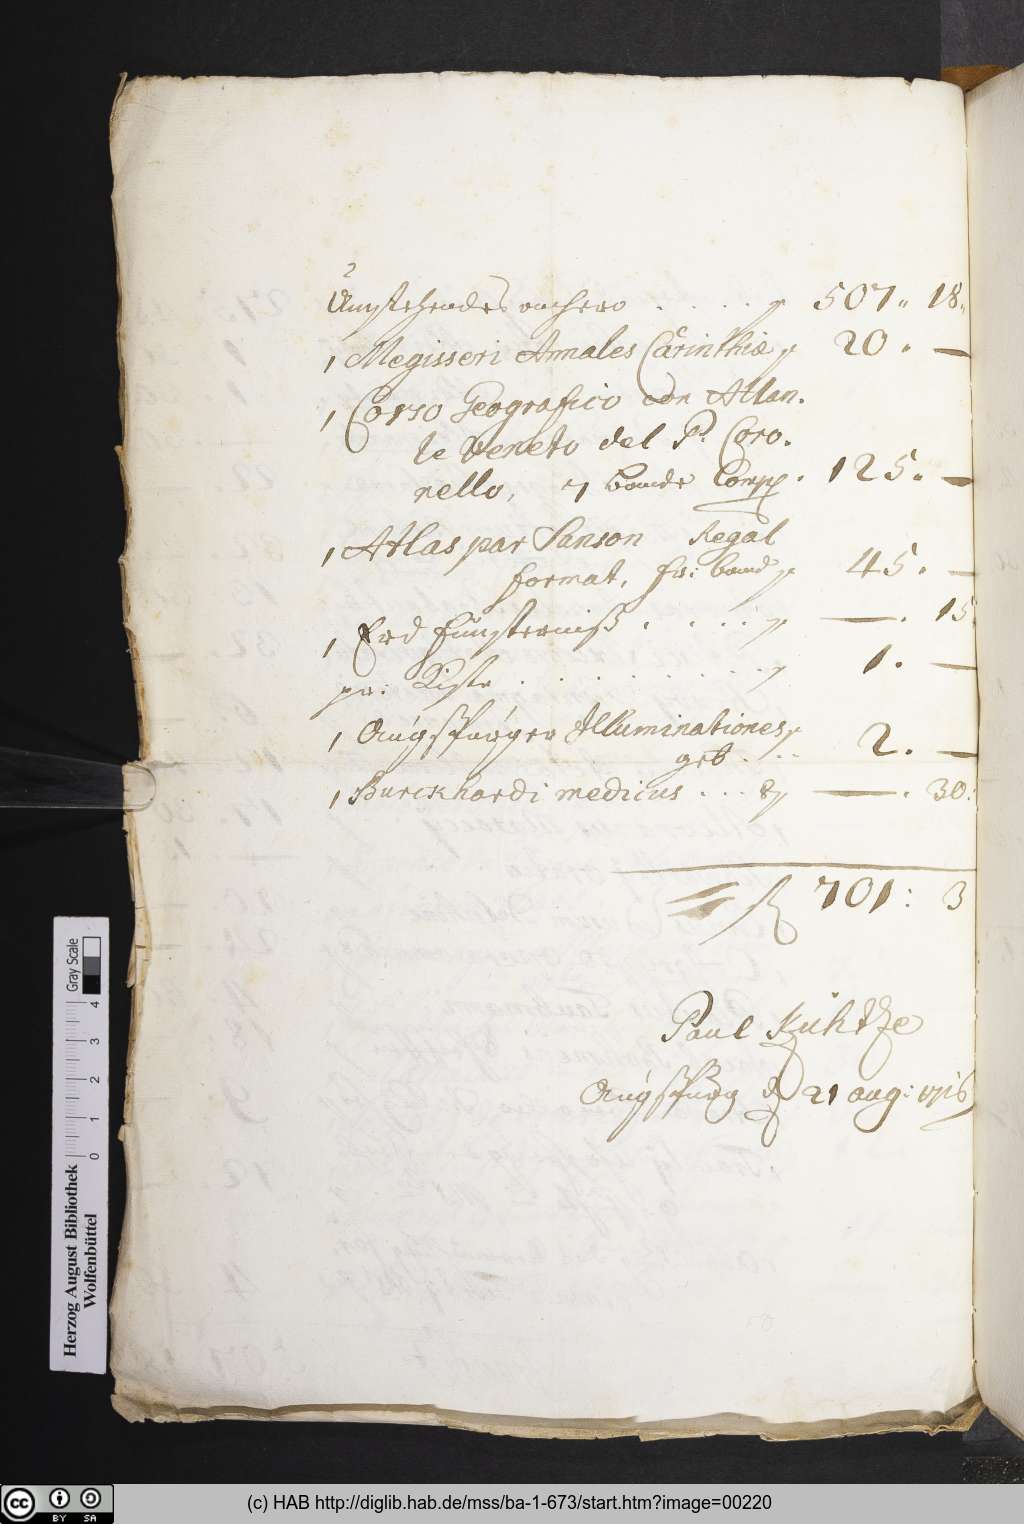 Umstehendes anhero . . . . f 507.. 18..
1 Megisseri Annales Carinthiæ f 20. —
1 Corso Geografico con Atlan.
te Veneto del P. Coro.
nello, 7 bande Comp. 125. —
1 Atlas par Sanson Regal
format, fr: band f 45. —
1 Erd Fünsternuß . . . . f — . 15
pr: Kiste . . . . . . . . f 1. —
1 Augspurger Illuminationes f
geb . . . 2. —
1 Burckhardi medicus . . . f — . 30:
f 701: 3
Paul Kühtze
Augspurg d 21 aug: 1716
Herzog August Bibliothek
Wolfenbüttel
0 1 2 3 4
Gray Scale
CC BY SA
(c) HAB http://diglib.hab.de/mss/ba-1-673/start.htm?image=00220